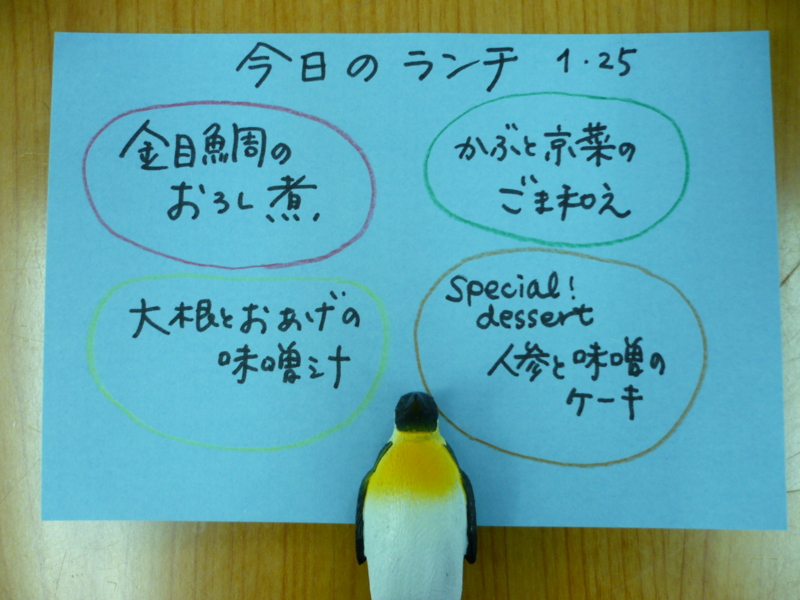 今日のランチ 1・25
金目鯛の
おろし煮
かぶと京菜の
ごま和え
大根とおあげの
味噌汁
special!
dessert
人参と味噌の
ケーキ